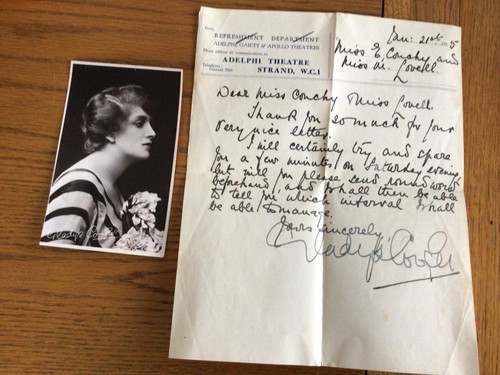 From
REFRESHMENT DEPARTMENT
ADELPHI, GAIETY & APOLLO THEATRES
Please address all communications to
ADELPHI THEATRE
STRAND, W.C.1
Telephone:
Gerrard
Jan: 21st 5
Miss E. Conchy and
Miss M. Lovell.
Dear Miss Conchy Miss Lovell
Thank you so much for your
very nice letter.
I will certainly try and spare
you a few minutes on Saturday evening,
but will you please send round word
beforehand, and I shall then be able
to tell you which interval I shall
be able to manage.
Yours sincerely,
Gladys Cooper
Gladys Cooper